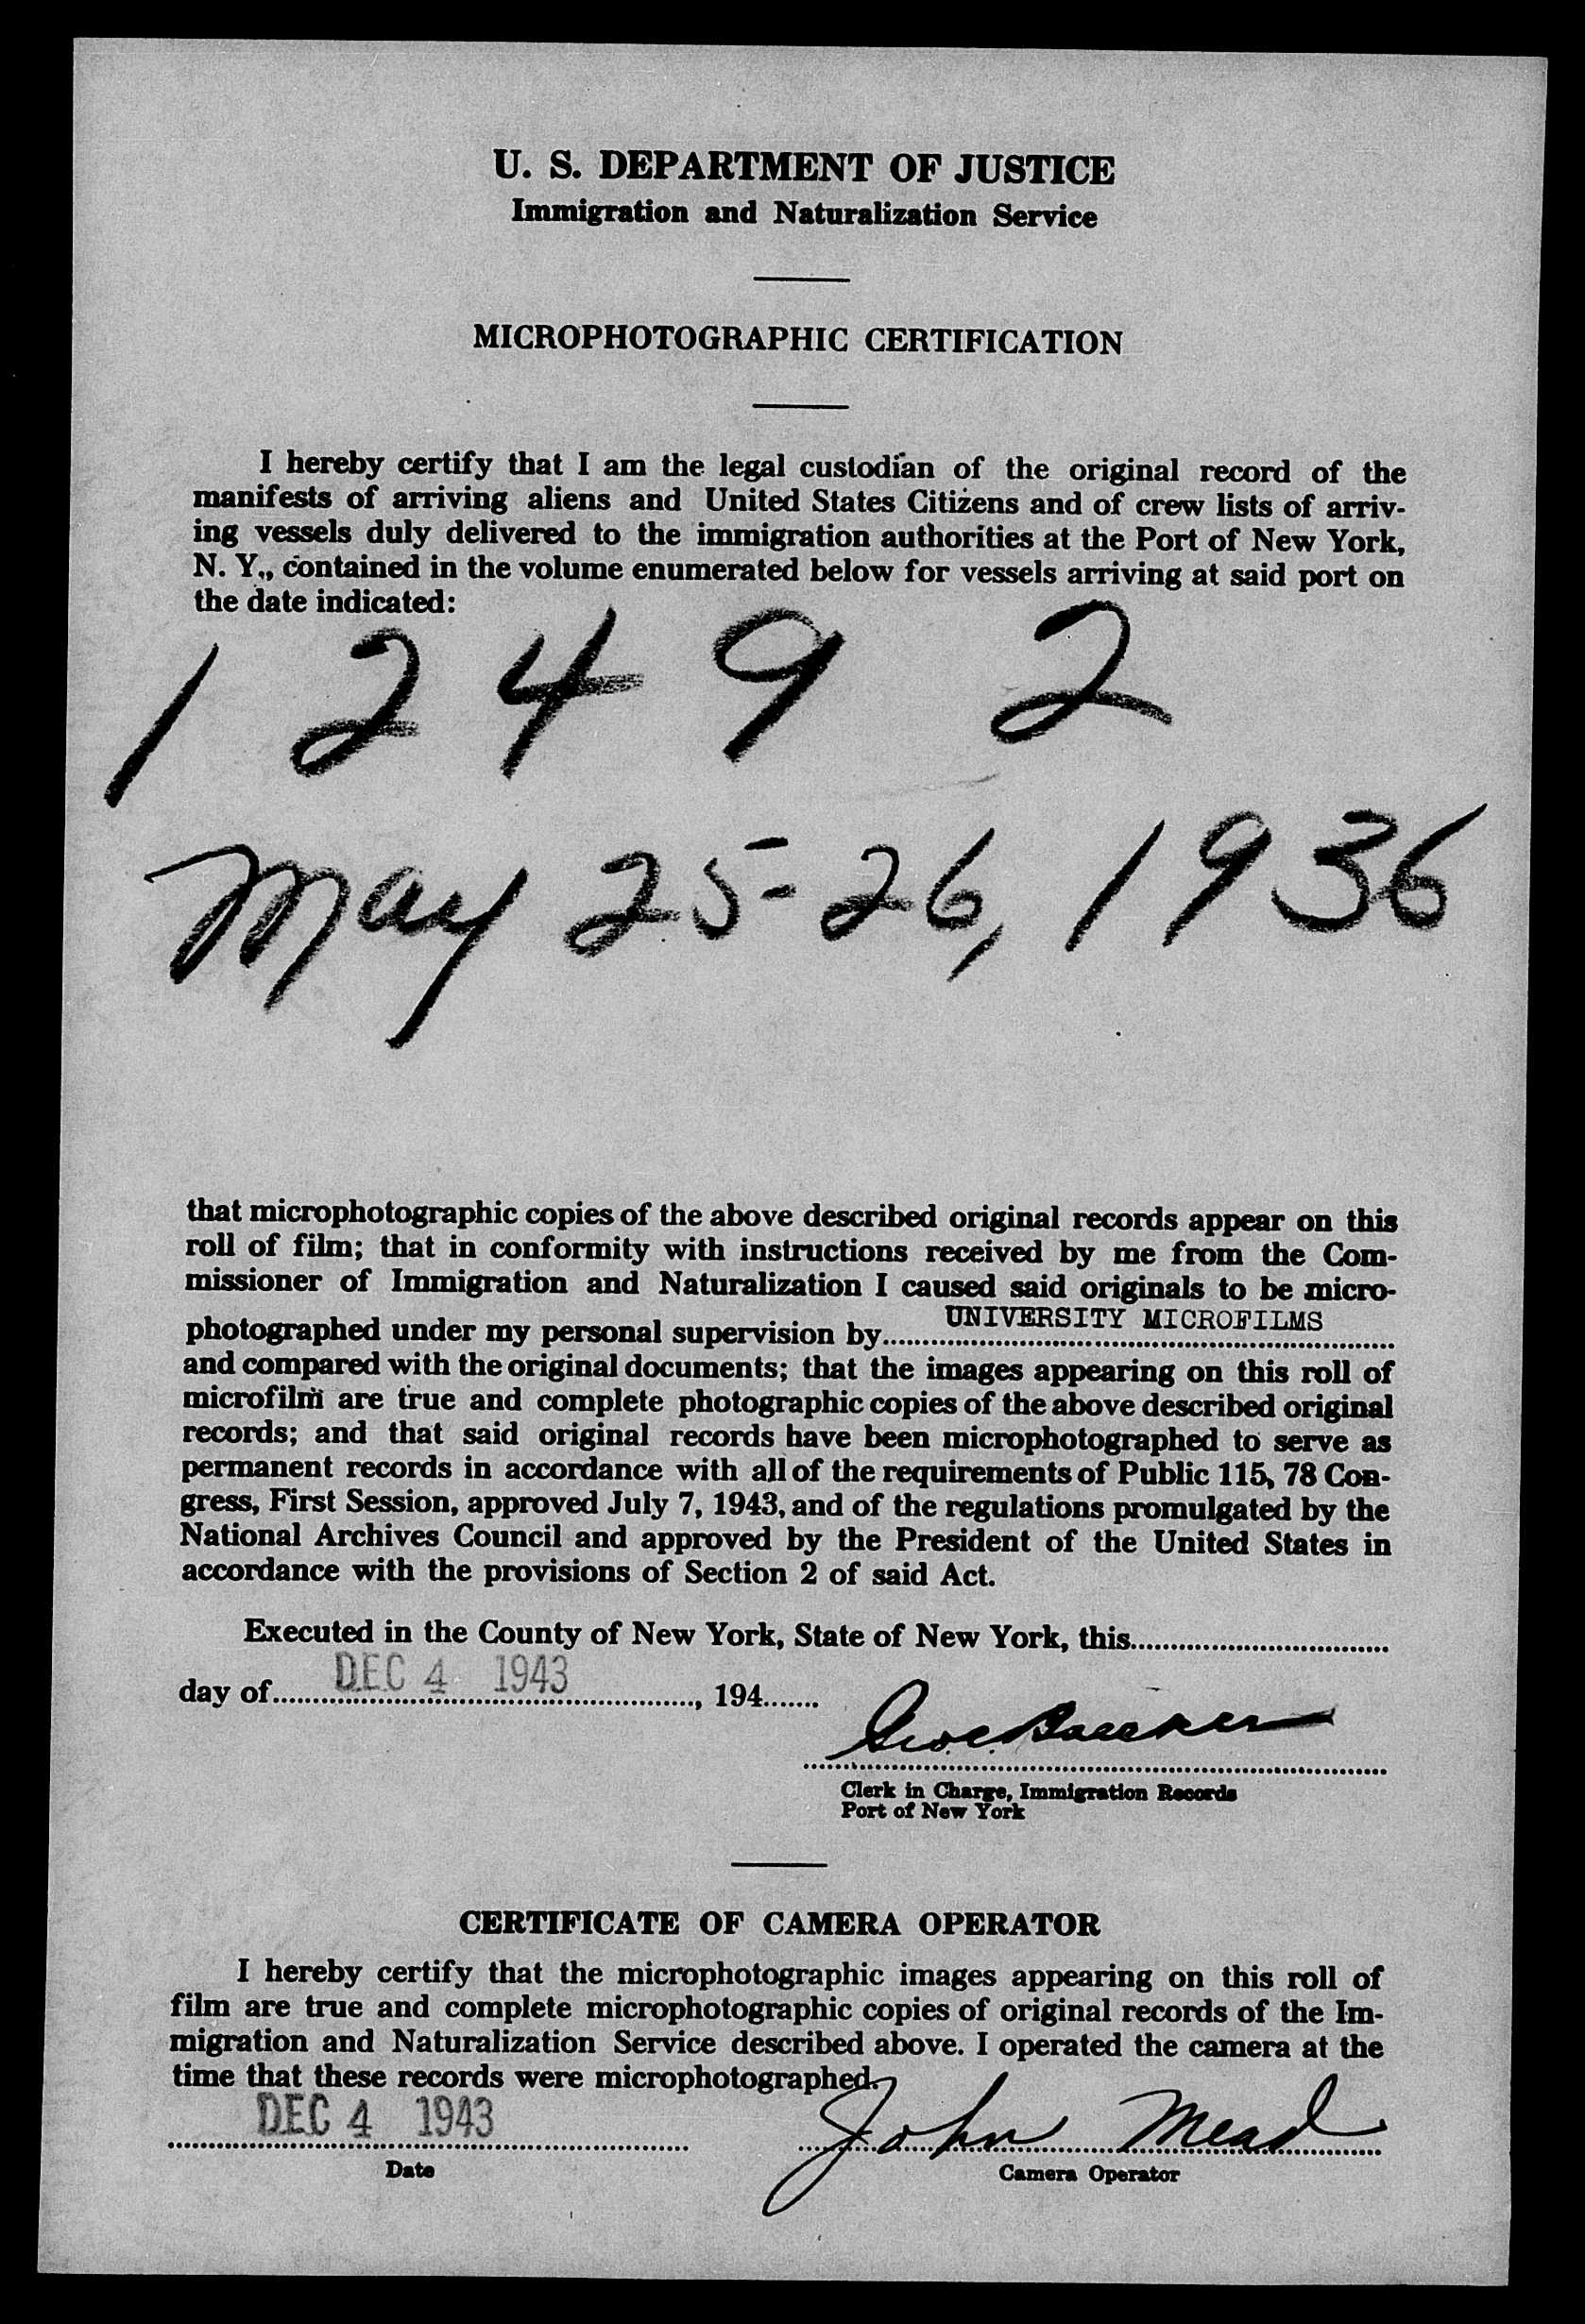 U. S. DEPARTMENT OF JUSTICE
Immigration and Naturalization Service
MICROPHOTOGRAPHIC CERTIFICATION
I hereby certify that I am the legal custodian of the original record of the
manifests of arriving aliens and United States Citizens and of crew lists of arriv-
ing vessels duly delivered to the immigration authorities at the Port of New York,
N. Y., contained in the volume enumerated below for vessels arriving at said port on
the date indicated:
1 2 4 9 2
May 25-26, 1936
that microphotographic copies of the above described original records appear on this
roll of film; that in conformity with instructions received by me from the Com-
missioner of Immigration and Naturalization I caused said originals to be micro-
photographed under my personal supervision by UNIVERSITY MICROFILMS
and compared with the original documents; that the images appearing on this roll of
microfilm are true and complete photographic copies of the above described original
records; and that said original records have been microphotographed to serve as
permanent records in accordance with all of the requirements of Public 115, 78 Con-
gress, First Session, approved July 7, 1943, and of the regulations promulgated by the
National Archives Council and approved by the President of the United States in
accordance with the provisions of Section 2 of said Act.
Executed in the County of New York, State of New York, this
day of DEC 4 1943, 194
Clerk in Charge, Immigration Records
Port of New York
CERTIFICATE OF CAMERA OPERATOR
I hereby certify that the microphotographic images appearing on this roll of
film are true and complete microphotographic copies of original records of the Im-
migration and Naturalization Service described above. I operated the camera at the
time that these records were microphotographed.
DEC 4 1943 John Mead
Date Camera Operator